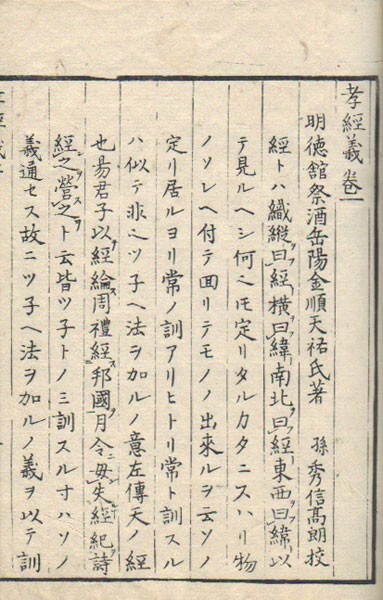 孝經義卷一
明德館祭酒岳陽金順天祐氏著　孫　秀信髙朗校
經トハ織縱曰經横曰緯南北曰經東西曰緯以
テ見ルヘシ何ニモ定リタルカタニスハリ物
ノソレヘ付テ回リテモノノ出來ルヲ云ソノ
定リ居ルヨリ常ノ訓アリヒトリ常ト訓スル
ハ似テ非ニツ子ヘ法ヲ加ルノ意左傳天ノ經
也昜君子以經綸周禮經邦國月令毋失經紀詩
經之營之ト云皆ツ子トノミ訓スル寸ハソノ
義通セス故ニツ子ヘ法ヲ加ルノ義ヲ以テ訓